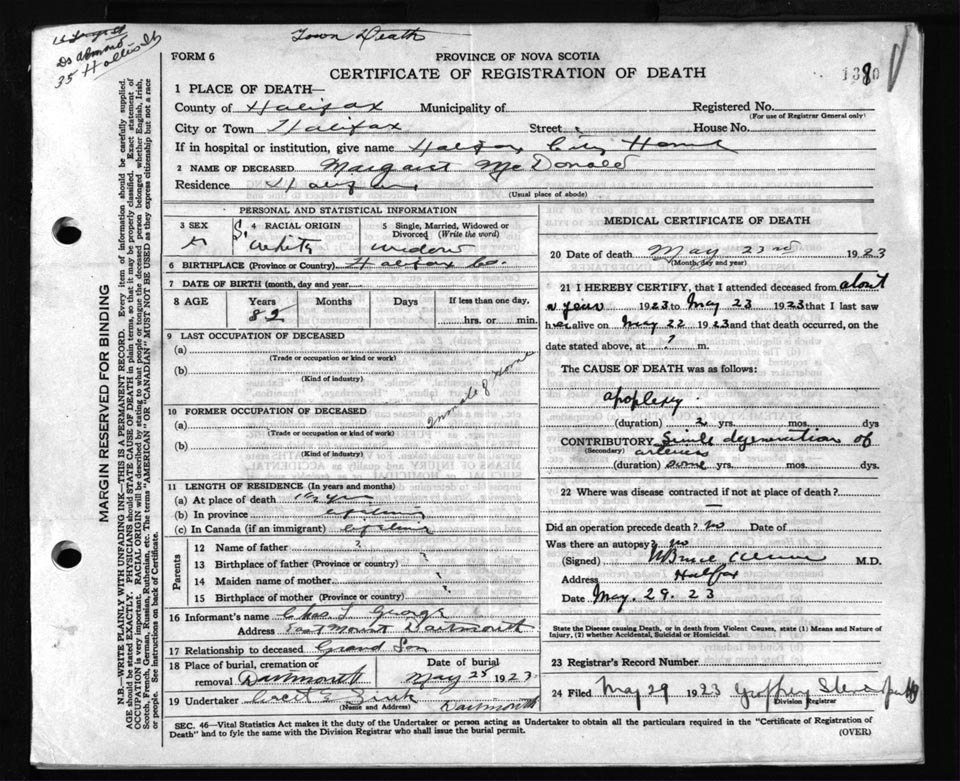 35 Hollis St
Town Death
FORM 6
PROVINCE OF NOVA SCOTIA
CERTIFICATE OF REGISTRATION OF DEATH
1380
1 PLACE OF DEATH—
County of Halifax Municipality of
Registered No.
(For use of Registrar General only)
City or Town Halifax Street House No.
If in hospital or institution, give name Halifax City Home
2 NAME OF DECEASED Margaret McDonald
Residence Halifax
(Usual place of abode)
PERSONAL AND STATISTICAL INFORMATION
3 SEX 4 RACIAL ORIGIN 5 Single, Married, Widowed or Divorced (Write the word)
White widow
6 BIRTHPLACE (Province or Country) Halifax Co.
7 DATE OF BIRTH (month, day and year)
8 AGE Years Months Days If less than one day,
82 hrs. or min.
9 LAST OCCUPATION OF DECEASED
(a)
(Trade or occupation or kind or work)
(b)
(Kind of industry)
Inmate of Home
10 FORMER OCCUPATION OF DECEASED
(a)
(Trade or occupation or kind of work)
(b)
(Kind of industry)
11 LENGTH OF RESIDENCE (In years and months)
(a) At place of death
(b) In province
(c) In Canada (if an immigrant)
Parents
12 Name of father ?
13 Birthplace of father (Province or country) ?
14 Maiden name of mother
15 Birthplace of mother (Province or country)
16 Informant's name Chas L George
Address East Mount Dartmouth
17 Relationship to deceased Grand Son
18 Place of burial, cremation or removal Dartmouth
Date of burial
May 25 1923
19 Undertaker Zink
(Name and Address) Dartmouth
MEDICAL CERTIFICATE OF DEATH
20 Date of death May 23rd 1923
(Month, day and year)
21 I HEREBY CERTIFY, that I attended deceased from about
a year 1923 to May 23 1923 that I last saw
her alive on May 22 1923 and that death occurred, on the
date stated above, at ? m.
The CAUSE OF DEATH was as follows:
apoplexy
(duration) 2 yrs. mos. dys
CONTRIBUTORY Senile degeneration of
(Secondary) arteries
(duration) some yrs. mos. dys.
22 Where was disease contracted if not at place of death?
—
Did an operation precede death? no Date of
Was there an autopsy? no
(Signed) M.D.
Address Halifax
Date May. 29. 23
State the Disease causing Death, or in death from Violent Causes, state (1) Means and Nature of
Injury, (2) whether Accidental, Suicidal or Homicidal.
23 Registrar's Record Number
24 Filed May 29 1923 Geoffrey
Division Registrar
SEC. 46—Vital Statistics Act makes it the duty of the Undertaker or person acting as Undertaker to obtain all the particulars required in the "Certificate of Registration of
Death" and to fyle the same with the Division Registrar who shall issue the burial permit. (OVER)
MARGIN RESERVED FOR BINDING
N.B.—WRITE PLAINLY WITH UNFADING INK—THIS IS A PERMANENT RECORD. Every item of information should be carefully supplied.
AGE should be stated EXACTLY. PHYSICIANS should STATE CAUSE OF DEATH in plain terms, so that it may be properly classified. Exact statement of
OCCUPATION is very important. RACIAL ORIGIN will be described by stating to what people or tongue the deceased person belonged whether English, Irish,
Scotch, French, German, Russian, Ruthenian, etc. The terms "AMERICAN" or "CANADIAN" MUST NOT BE USED as they express citizenship but not a race
or people. See instructions on back of Certificate.